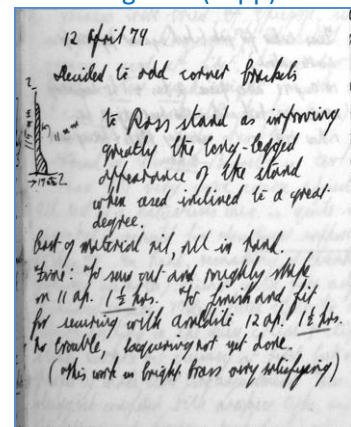 12 April 79
Decided to add corner brackets
to Ross stand as improving
greatly the long-legged
appearance of the stand
when used inclined to a great
degree.
Cost of material nil, all in hand.
Time: To saw out and roughly shape
on 11 ap. 1½ hrs. To finish and fit
for securing with araldite 12 ap. 1½ hrs.
No trouble, lacquering not yet done.
(This work in bright brass very satisfying)